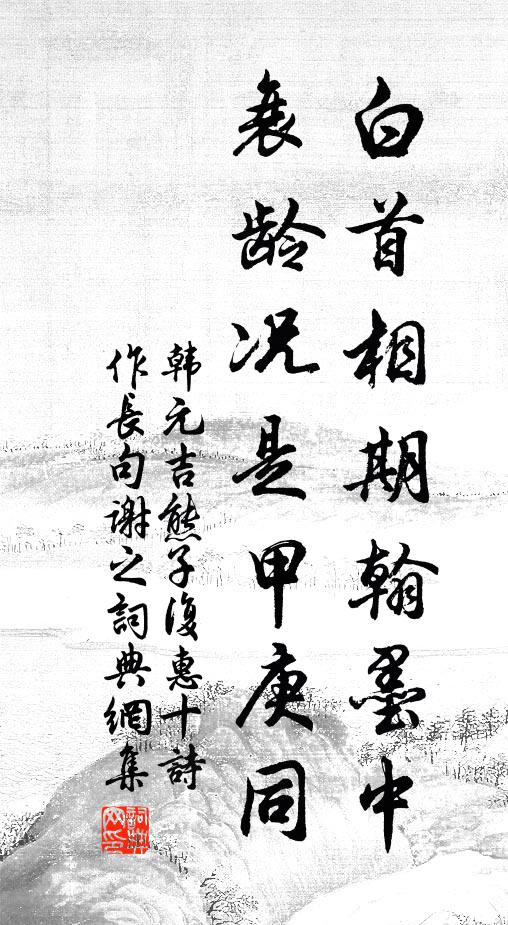 白首相期翰墨中
衰龄况是甲庚同
韩元吉熊子復惠十詩
作長句謝之詞典網集